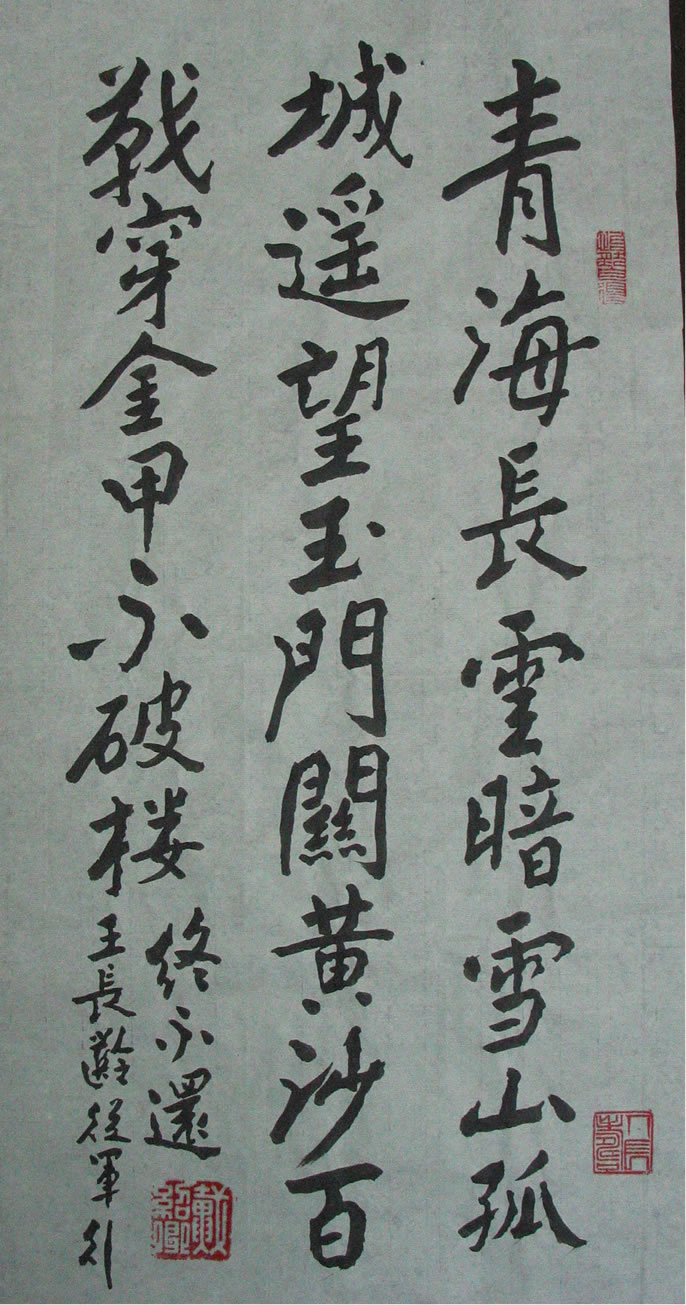 青海長雲暗雪山孤
城遥望玉門關黄沙百
戰穿金甲不破楼
終不還
王長齡從軍行
戴紹卿